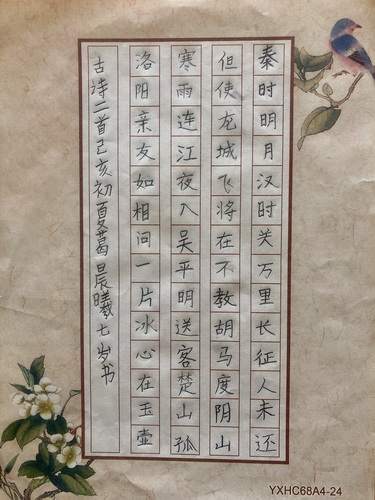 秦时明月汉时关万里长征人未还
但使龙城飞将在不教胡马度阴山
寒雨连江夜入吴平明送客楚山孤
洛阳亲友如相问一片冰心在玉壶
古诗二首己亥初夏葛晨曦七岁书
YXHC68A4-24